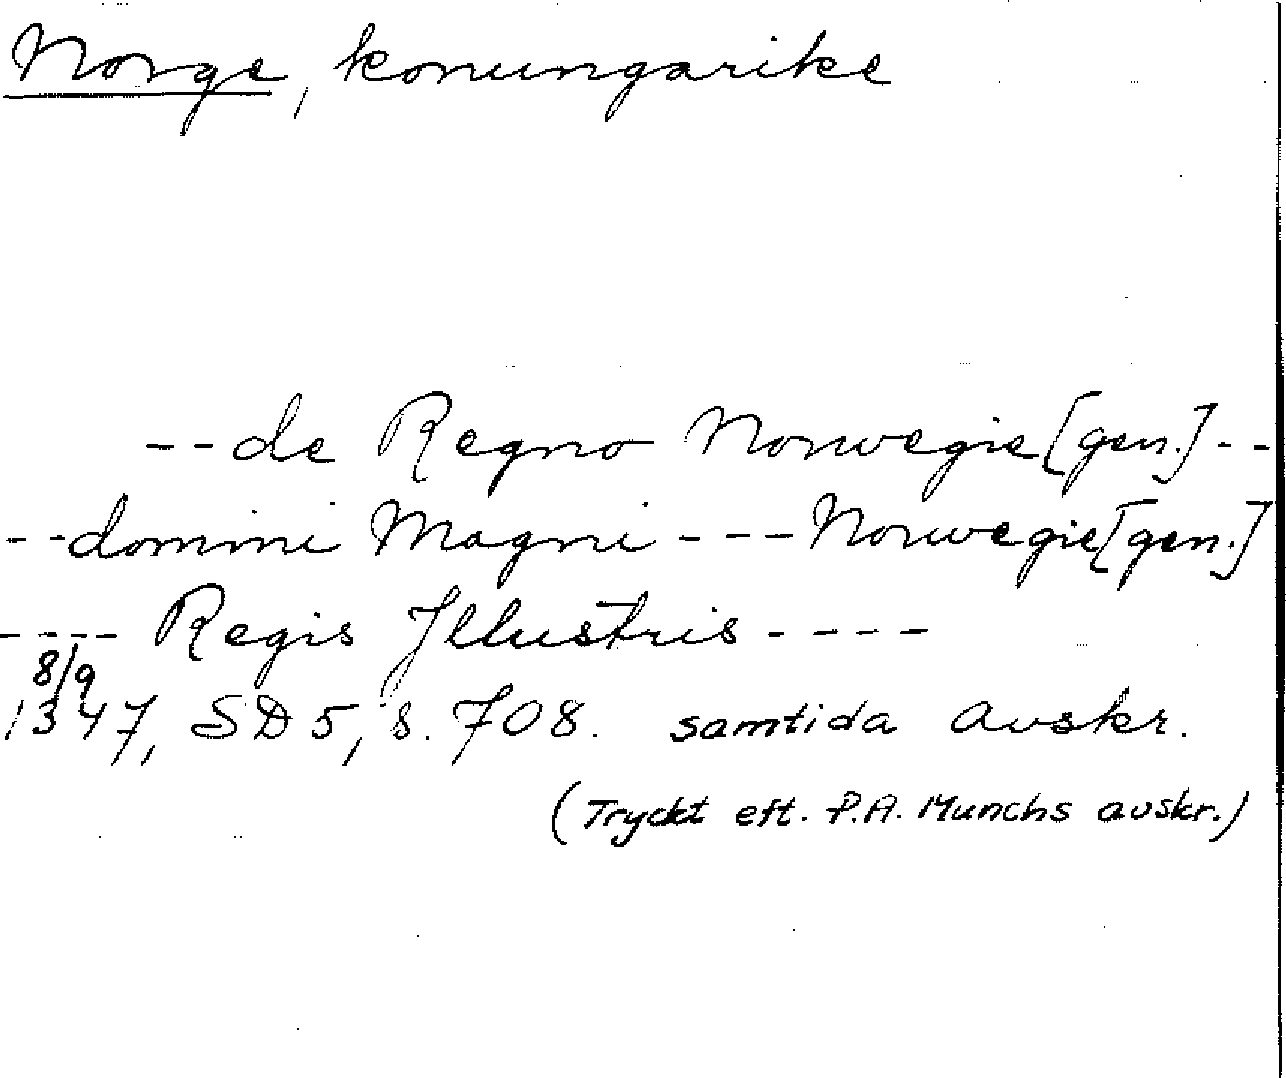 Norge, konungarike
--de Regno Norwegie [gen.]--
--domini Magni ---Norwegie [gen.]
---- Regis Jllustris ----
8/9
1347, SD 5, s. 708. samtida avskr.
(Tryckt eft. P.A. Munchs avskr.)